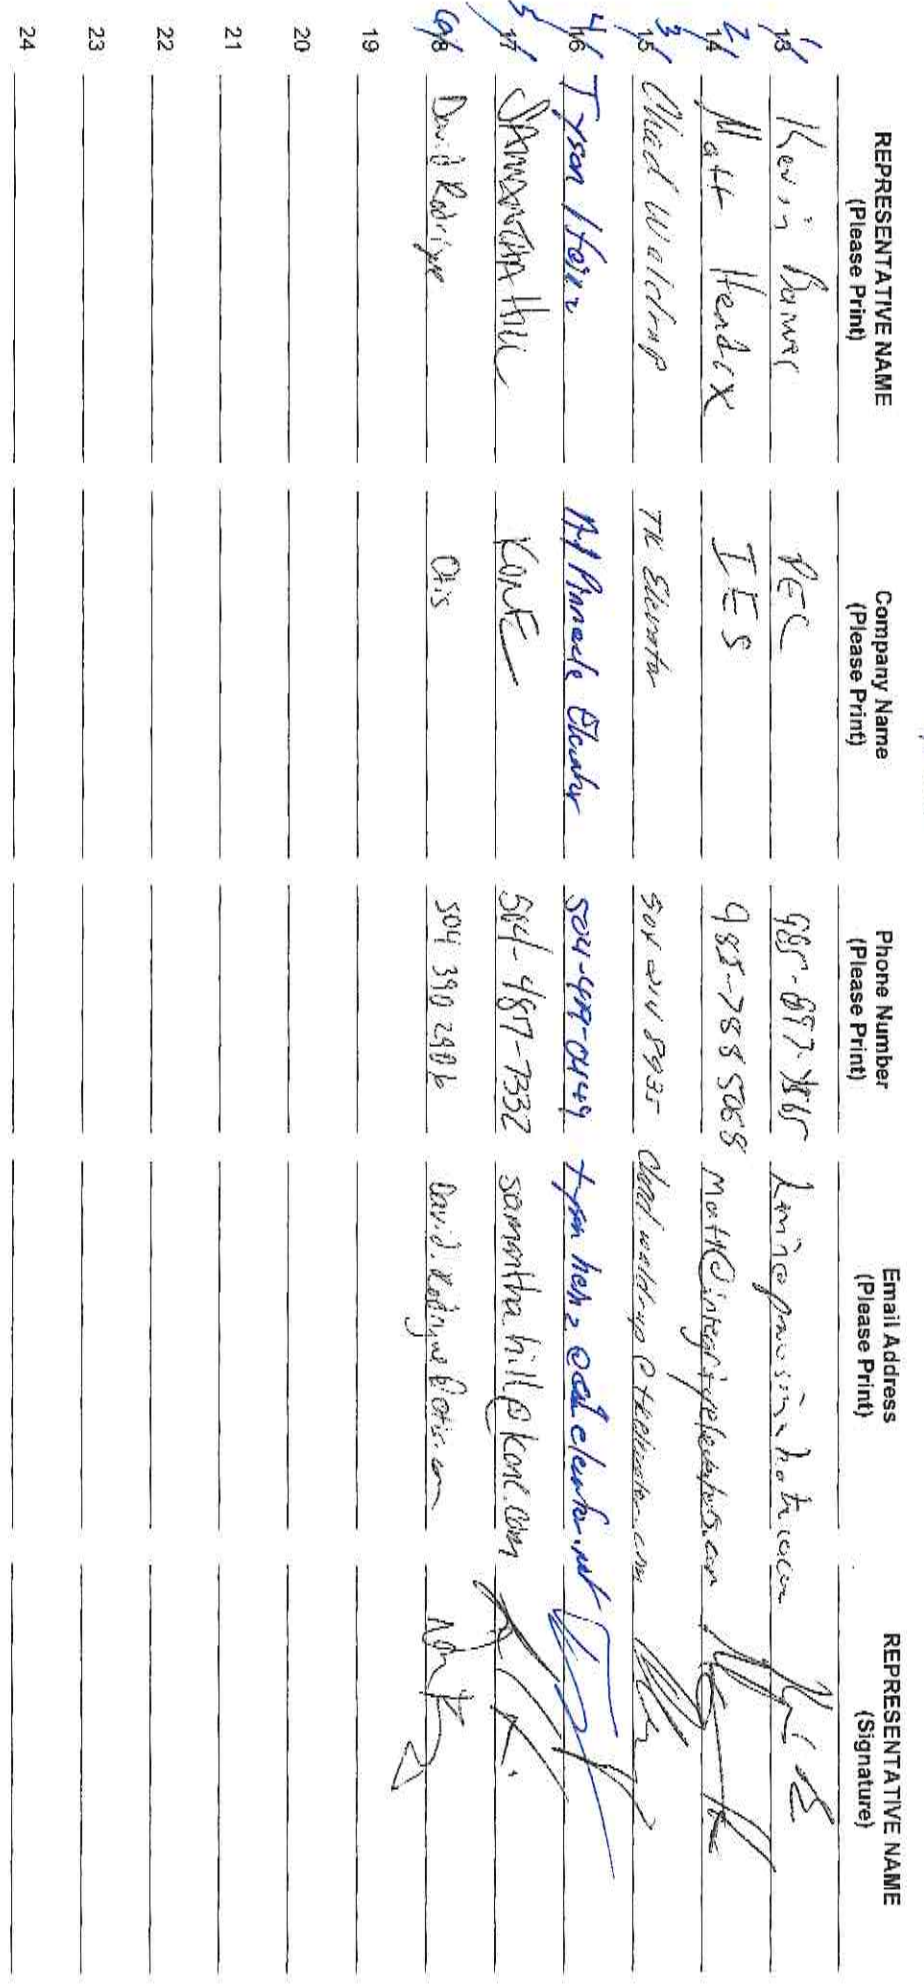 REPRESENTATIVE NAME (Please Print) Company Name (Please Print) Phone Number (Please Print) Email Address (Please Print) REPRESENTATIVE NAME (Signature)
1/ 13 Kevin PEC
2/ 14 Matt Hendrix IES 985-788 5068 Matt@integrityelevators.com
3/ 15 Chad Waldrup TK Elevator 8935 chad.waldrup@tkelevator.com
4/ 16 Tyson Heinz Pinnacle Elevator
5/ 17 SAMANTHA HILL KONE 504-487-7332 samantha.hill@kone.com
6/ 18 David Rodrigue Otis 504 390 2906 David.Rodrigue@otis.com
19
20
21
22
23
24